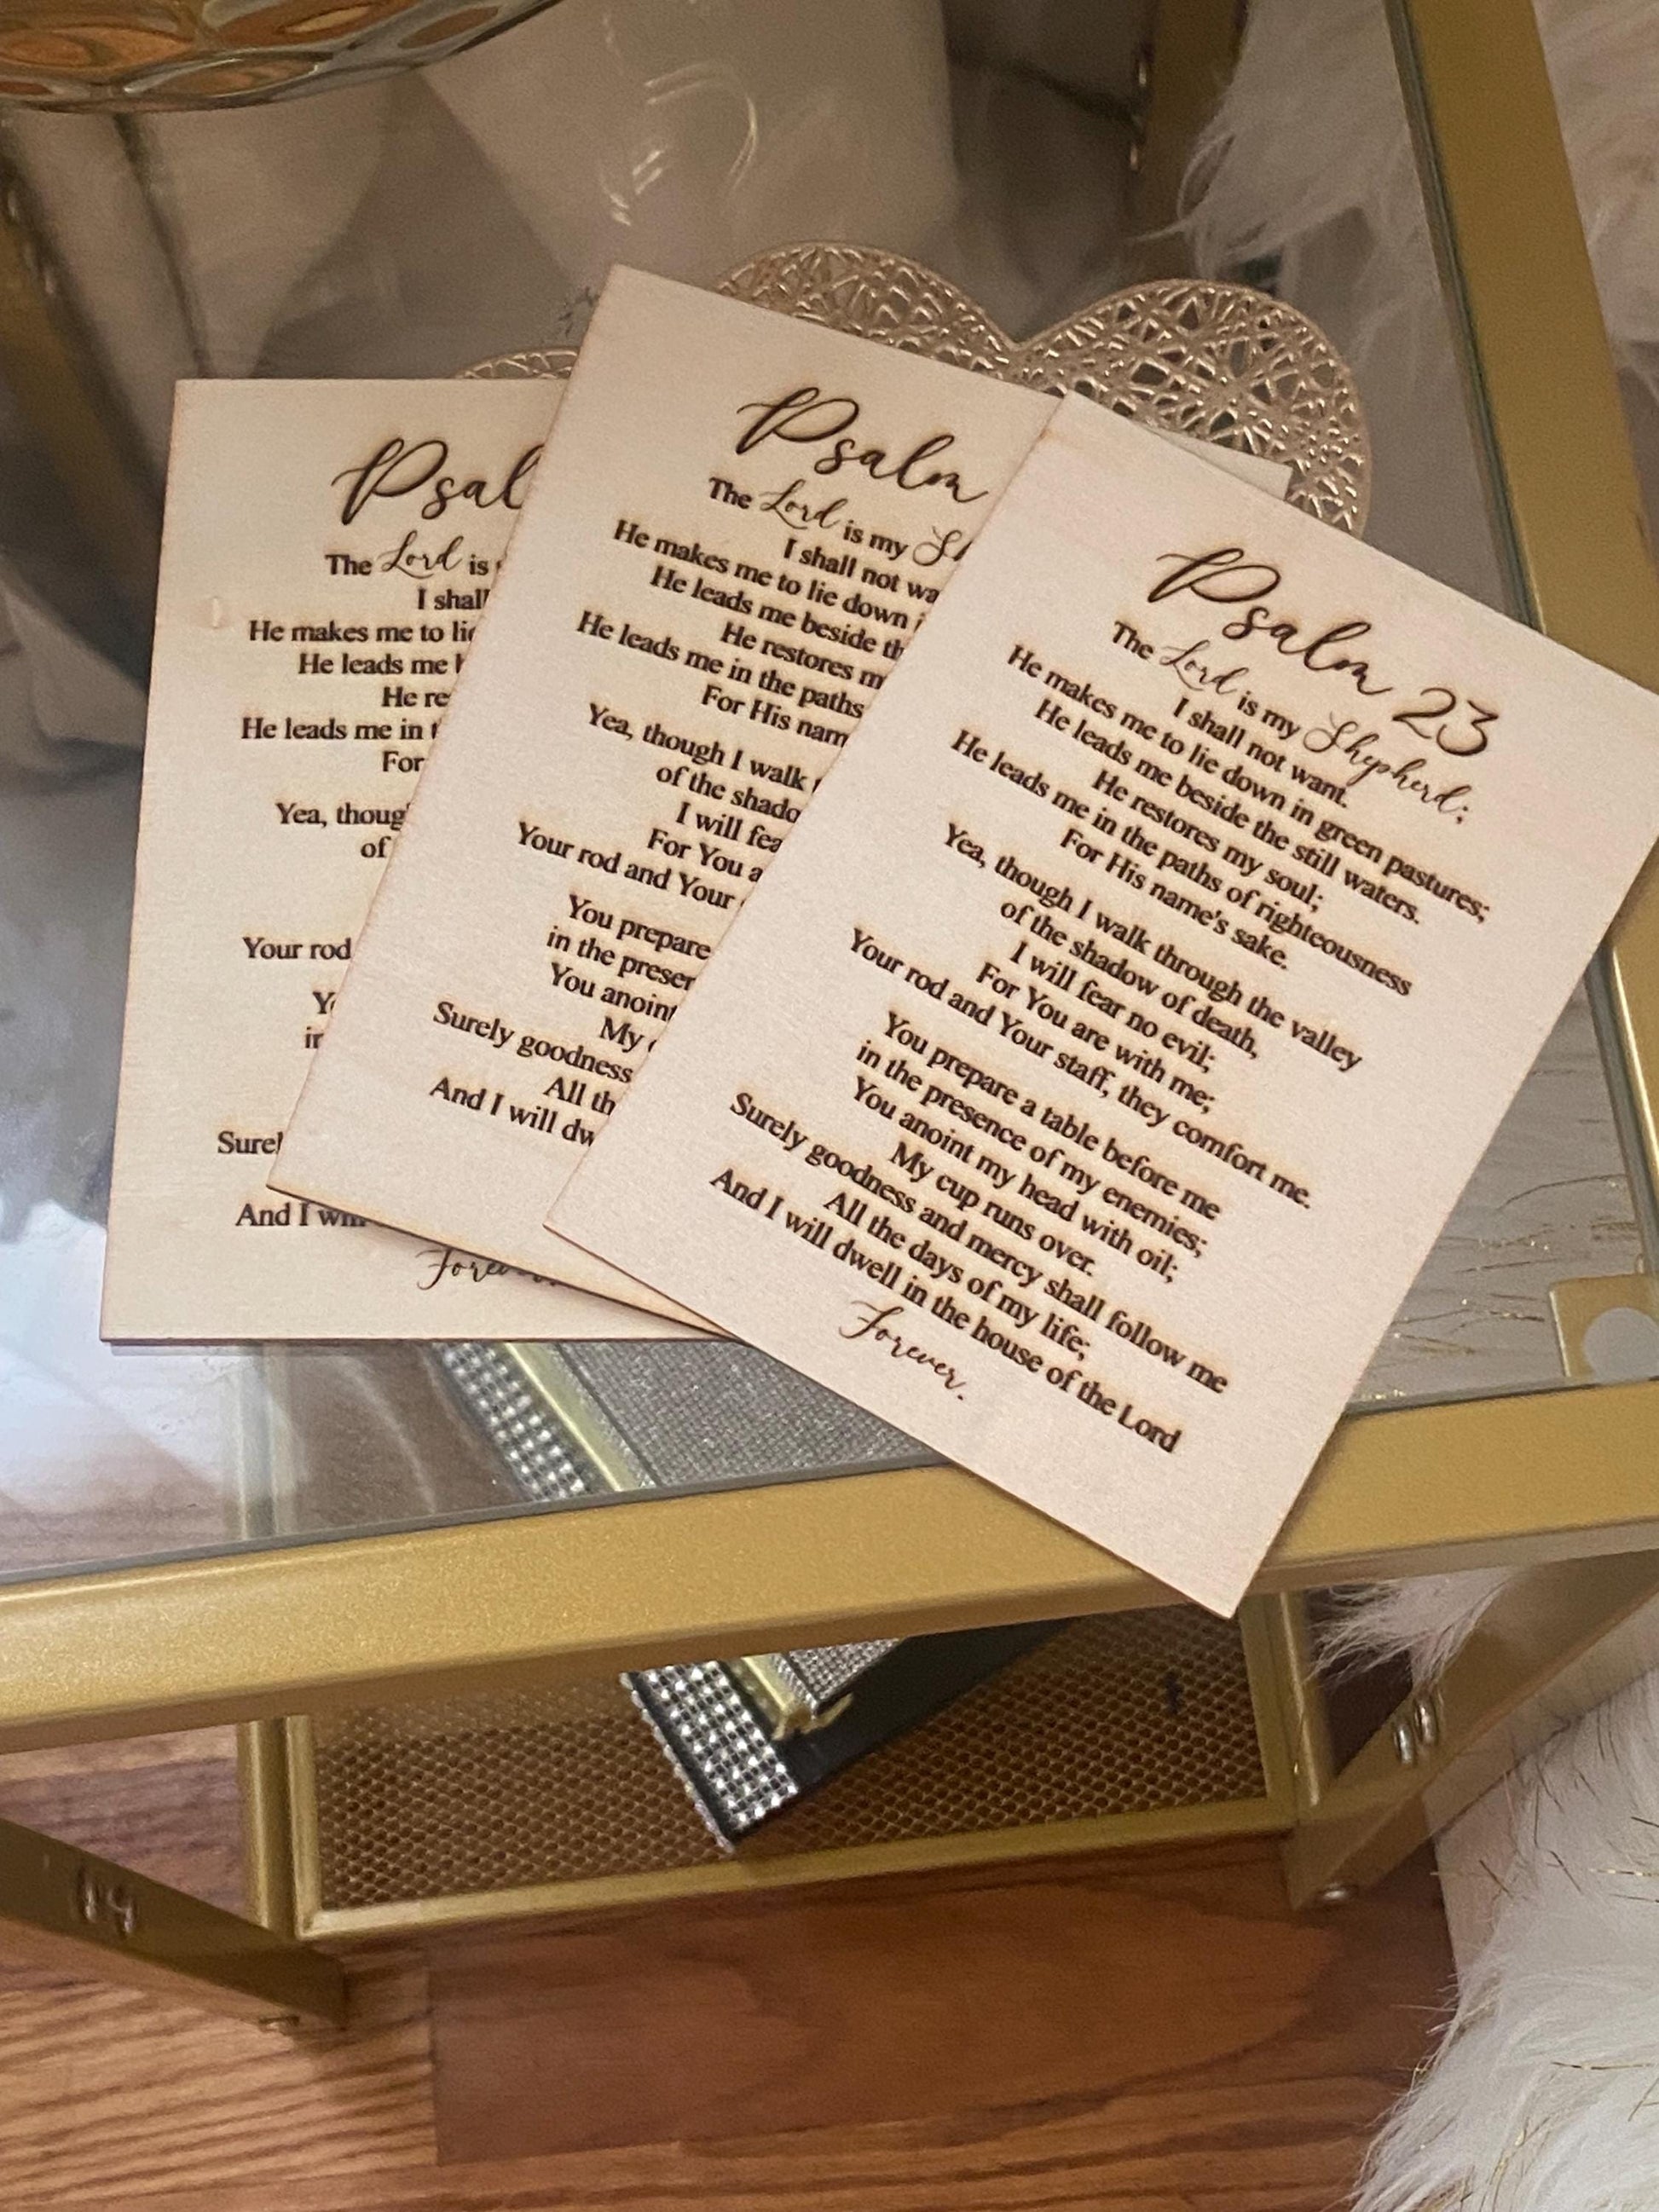 Psal
The Lord is
I shall
He makes me to lie
He leads me
He re
He leads me in
For
Yea, thoug
of
Your rod
in
Surel
And I will
Forever.
Psalm
The Lord is my Sh
I shall not wa
He makes me to lie down i
He leads me beside th
He restores m
He leads me in the paths
For His nam
Yea, though I walk
of the shado
I will fea
For You a
Your rod and Your
You prepare
in the presen
You anoint
My
Surely goodness
All th
And I will dw
Psalm 23
The Lord is my Shepherd;
I shall not want.
He makes me to lie down in green pastures;
He leads me beside the still waters.
He restores my soul;
He leads me in the paths of righteousness
For His name's sake.
Yea, though I walk through the valley
of the shadow of death,
I will fear no evil;
For You are with me;
Your rod and Your staff, they comfort me.
You prepare a table before me
in the presence of my enemies;
You anoint my head with oil;
My cup runs over.
Surely goodness and mercy shall follow me
All the days of my life;
And I will dwell in the house of the Lord
Forever.